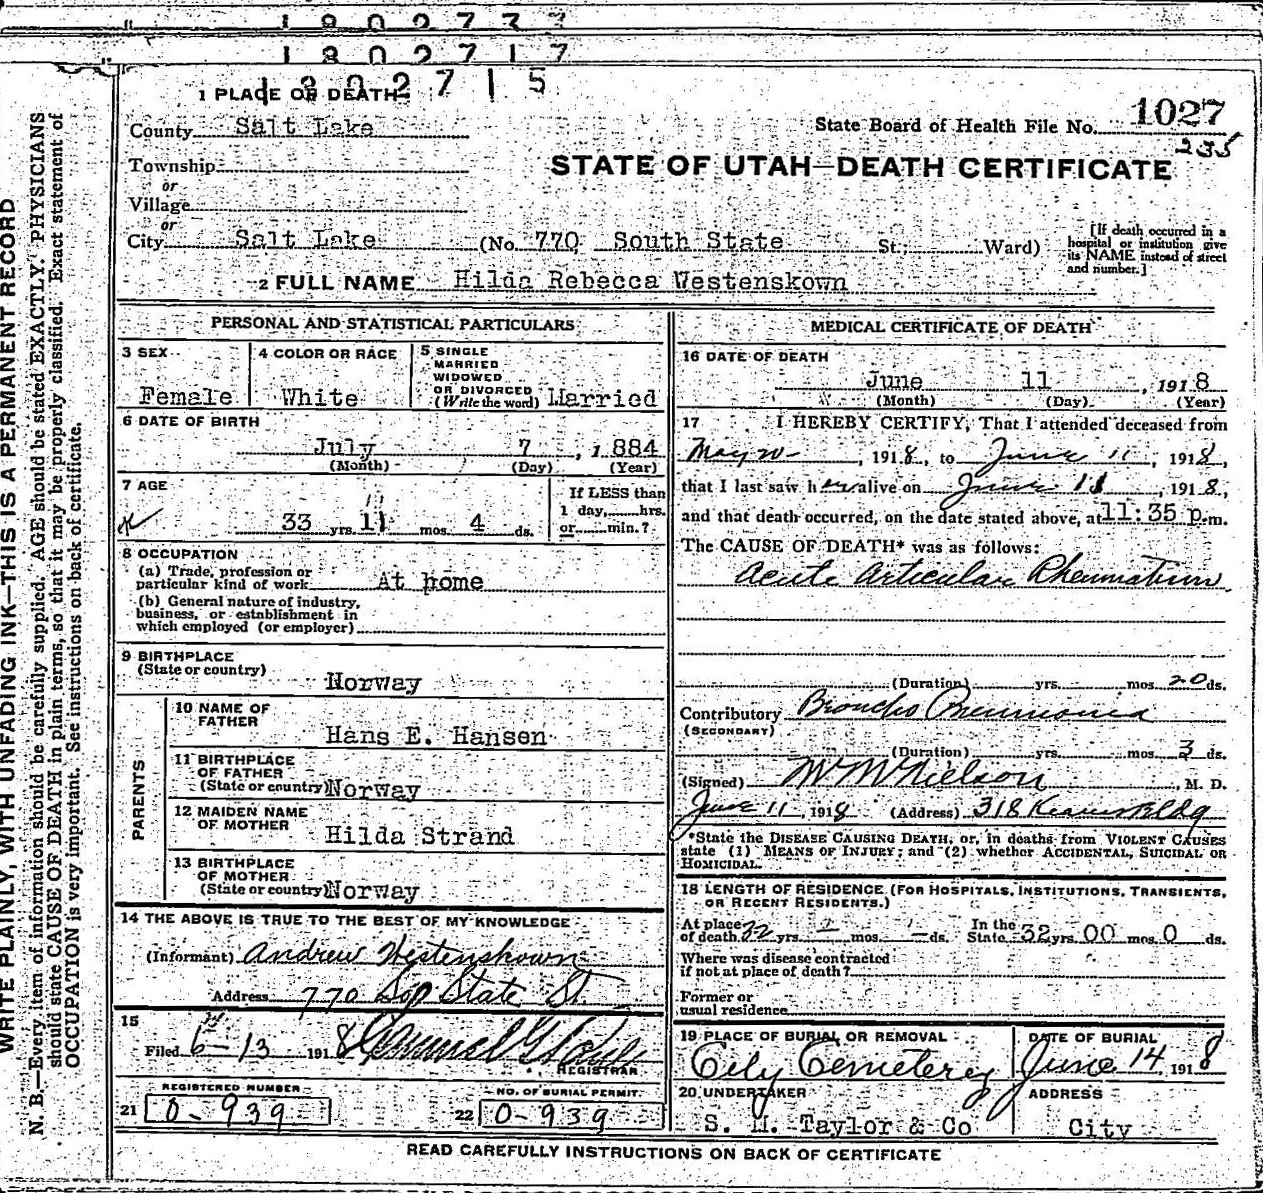 1802737
1802717
1802715
1 PLACE OF DEATH
County Salt Lake
Township
or
Village
or
City Salt Lake (No. 770 South State St.; Ward)
State Board of Health File No. 1027
235
STATE OF UTAH—DEATH CERTIFICATE
[If death occurred in a
hospital or institution give
its NAME instead of street
and number.]
2 FULL NAME Hilda Rebecca Westenskown
PERSONAL AND STATISTICAL PARTICULARS
3 SEX Female
4 COLOR OR RACE White
5 SINGLE
MARRIED
WIDOWED
OR DIVORCED
(Write the word) Married
6 DATE OF BIRTH
July 7, 1884
(Month) (Day) (Year)
7 AGE
11
33 yrs. 11 mos. 4 ds.
If LESS than
1 day, hrs.
or min.?
8 OCCUPATION
(a) Trade, profession or
particular kind of work At home
(b) General nature of industry,
business, or establishment in
which employed (or employer)
9 BIRTHPLACE
(State or country) Norway
PARENTS
10 NAME OF
FATHER Hans E. Hansen
11 BIRTHPLACE
OF FATHER
(State or country) Norway
12 MAIDEN NAME
OF MOTHER Hilda Strand
13 BIRTHPLACE
OF MOTHER
(State or country) Norway
14 THE ABOVE IS TRUE TO THE BEST OF MY KNOWLEDGE
(Informant) Andrew Westenskown
Address 770 Sop State St
15
Filed 6-13 1918
REGISTRAR
REGISTERED NUMBER
21 0-939
NO. OF BURIAL PERMIT
22 0-939
MEDICAL CERTIFICATE OF DEATH
16 DATE OF DEATH
June 11, 1918
(Month) (Day) (Year)
17 I HEREBY CERTIFY, That I attended deceased from
May 20, 1918, to June 11, 1918,
that I last saw her alive on June 11, 1918,
and that death occurred, on the date stated above, at 11:35 p.m.
The CAUSE OF DEATH* was as follows:
Acute Articular Rheumatism
(Duration) yrs. mos. 20 ds.
Contributory Broncho Pneumonia
(SECONDARY)
(Duration) yrs. mos. 3 ds.
(Signed) W W Nielson, M. D.
June 11, 1918 (Address) 318 Kearns Bldg
*State the DISEASE CAUSING DEATH, or, in deaths from VIOLENT CAUSES
state (1) MEANS OF INJURY; and (2) whether ACCIDENTAL, SUICIDAL OR
HOMICIDAL.
18 LENGTH OF RESIDENCE (FOR HOSPITALS, INSTITUTIONS, TRANSIENTS,
OR RECENT RESIDENTS.)
At place
of death 32 yrs. - mos. - ds. In the
State 32 yrs. 00 mos. 0 ds.
Where was disease contracted
if not at place of death?
Former or
usual residence
19 PLACE OF BURIAL OR REMOVAL
City Cemetery
DATE OF BURIAL
June 14 1918
20 UNDERTAKER
S. M. Taylor & Co
ADDRESS
City
READ CAREFULLY INSTRUCTIONS ON BACK OF CERTIFICATE
WRITE PLAINLY, WITH UNFADING INK—THIS IS A PERMANENT RECORD
N. B.—Every item of information should be carefully supplied. AGE should be stated EXACTLY. PHYSICIANS
should state CAUSE OF DEATH in plain terms, so that it may be properly classified. Exact statement of
OCCUPATION is very important. See instructions on back of certificate.